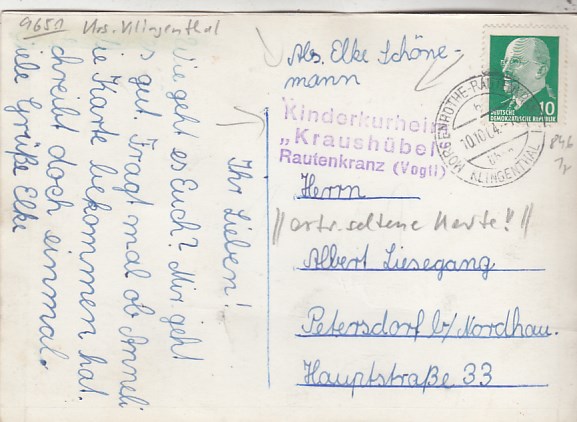 9651 Krs. Klingenthal
Ihr Lieben!
Wie geht es Euch? Mir geht
es gut. Fragt mal ob Anneli
die Karte bekommen hat.
Schreibt doch einmal.
Viele Grüße Elke
Abs. Elke Schöne-
mann
Kinderkurheim
„Kraushübel
Rautenkranz (Vogtl)
10
DEUTSCHE
DEMOKRATISCHE REPUBLIK
MORGENRÖTHE-RAUTENKRANZ
10.10.64
KLINGENTHAL
Herrn
Albert Liesegang
Petersdorf b/Nordhau.
Hauptstraße 33